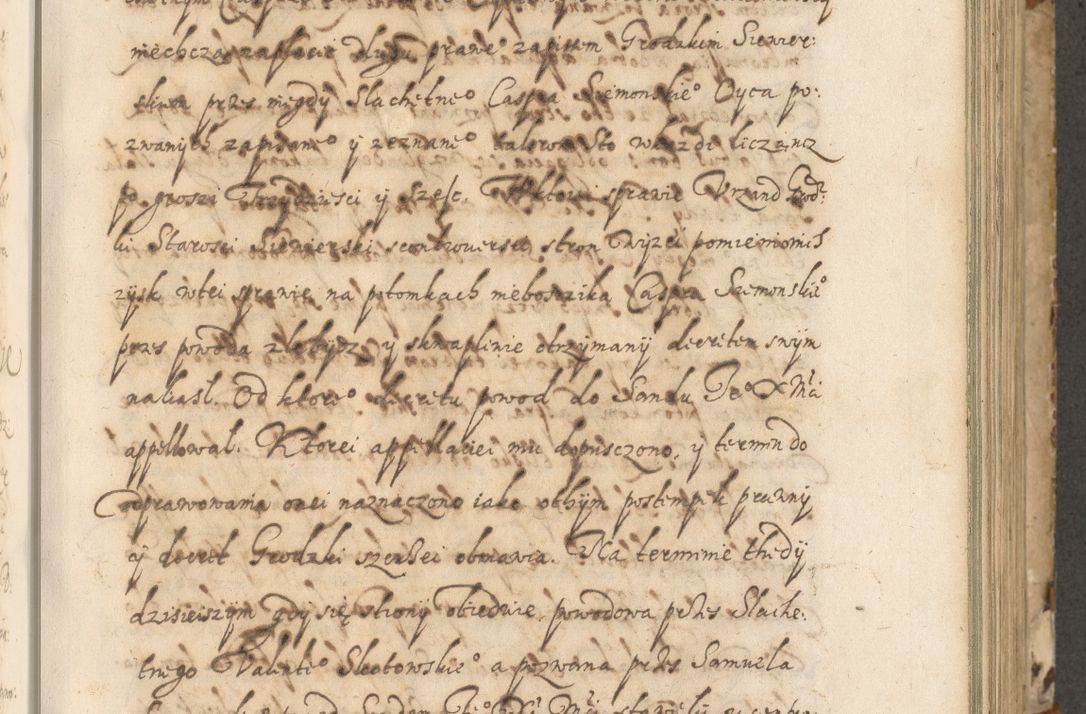 niechcze zapłacic długu prawe zapisem Grodzkim Siewier:
skiem przes niegdy Slachetne⁰ Caspra Siemonskie⁰ Oyca po:
zwanych zapisane⁰ y zeznane⁰ talerow Sto w każdi licząncz
po groszi Trzydziesci y szesc. W ktorei sprawie Vrzand Grodz:
ki Starosci Siewierski scontrouersii stron Wyzei pomienionich
zysk wtei sprawie na potomkach nieboszczika Caspra Siemonskie⁰
przes powoda y otrzymany decretem swym
naliasl. Od ktore⁰ decretu powod do Sandu Je⁰ X Mci
appellował. Ktorei appellaciei mu dopusczono, y termin do
odprawowania onei naznaczono iako othym postempek prawny
y decret Grodzki szerzei obmawia. Na terminie thedy
dzisieiszym gdy się strony obiedwie powodowa przes Slache:
tnego Walente⁰ Skotowskie⁰ a pozwana przes Samuela